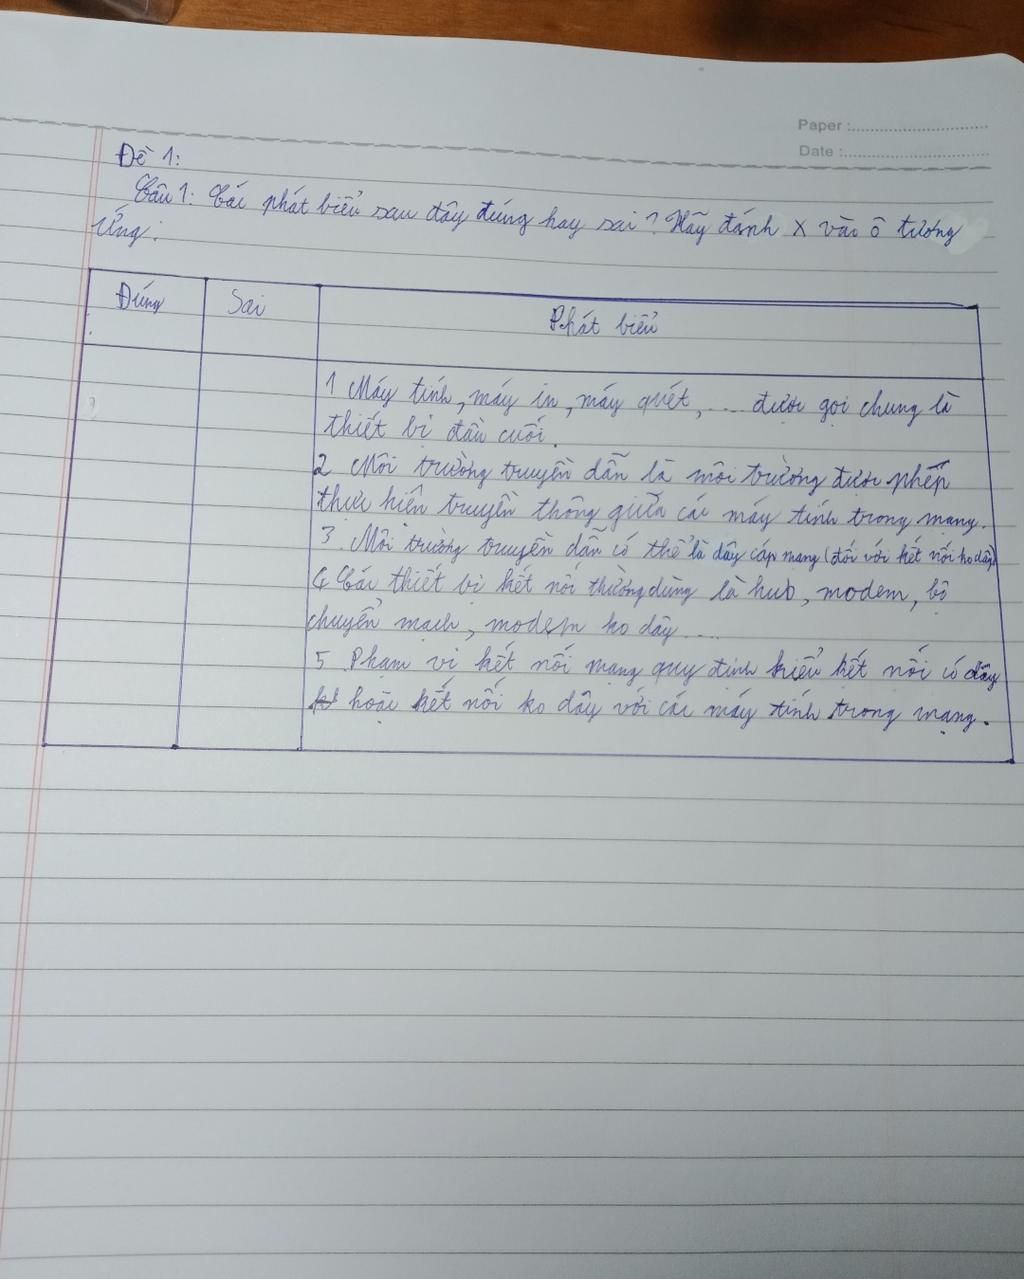 Paper :
Date :
Đề 1:
Câu 1: Các phát biểu sau đây đúng hay sai? Hãy đánh X vào ô tương
ứng:
Đúng Sai Phát biểu
1 Máy tính, máy in, máy quét, .... được gọi chung là
thiết bị đầu cuối.
2 Môi trường truyền dẫn là môi trường được phép
thực hiện truyền thông giữa các máy tính trong mạng.
3. Môi trường truyền dẫn có thể là dây cáp mạng (đối với kết nối ko dây)
4 Các thiết bị kết nối thường dùng là hub, modem, bộ
chuyển mạch, modem ko dây ....
5 Phạm vi kết nối mạng quy định kiểu kết nối có dây
hoặc kết nối ko dây với các máy tính trong mạng.